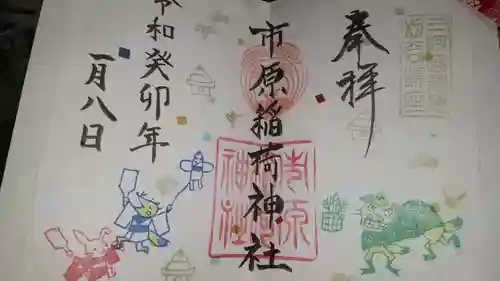 奉拝
市原稲荷神社
令和癸卯年
一月八日
市原
神社